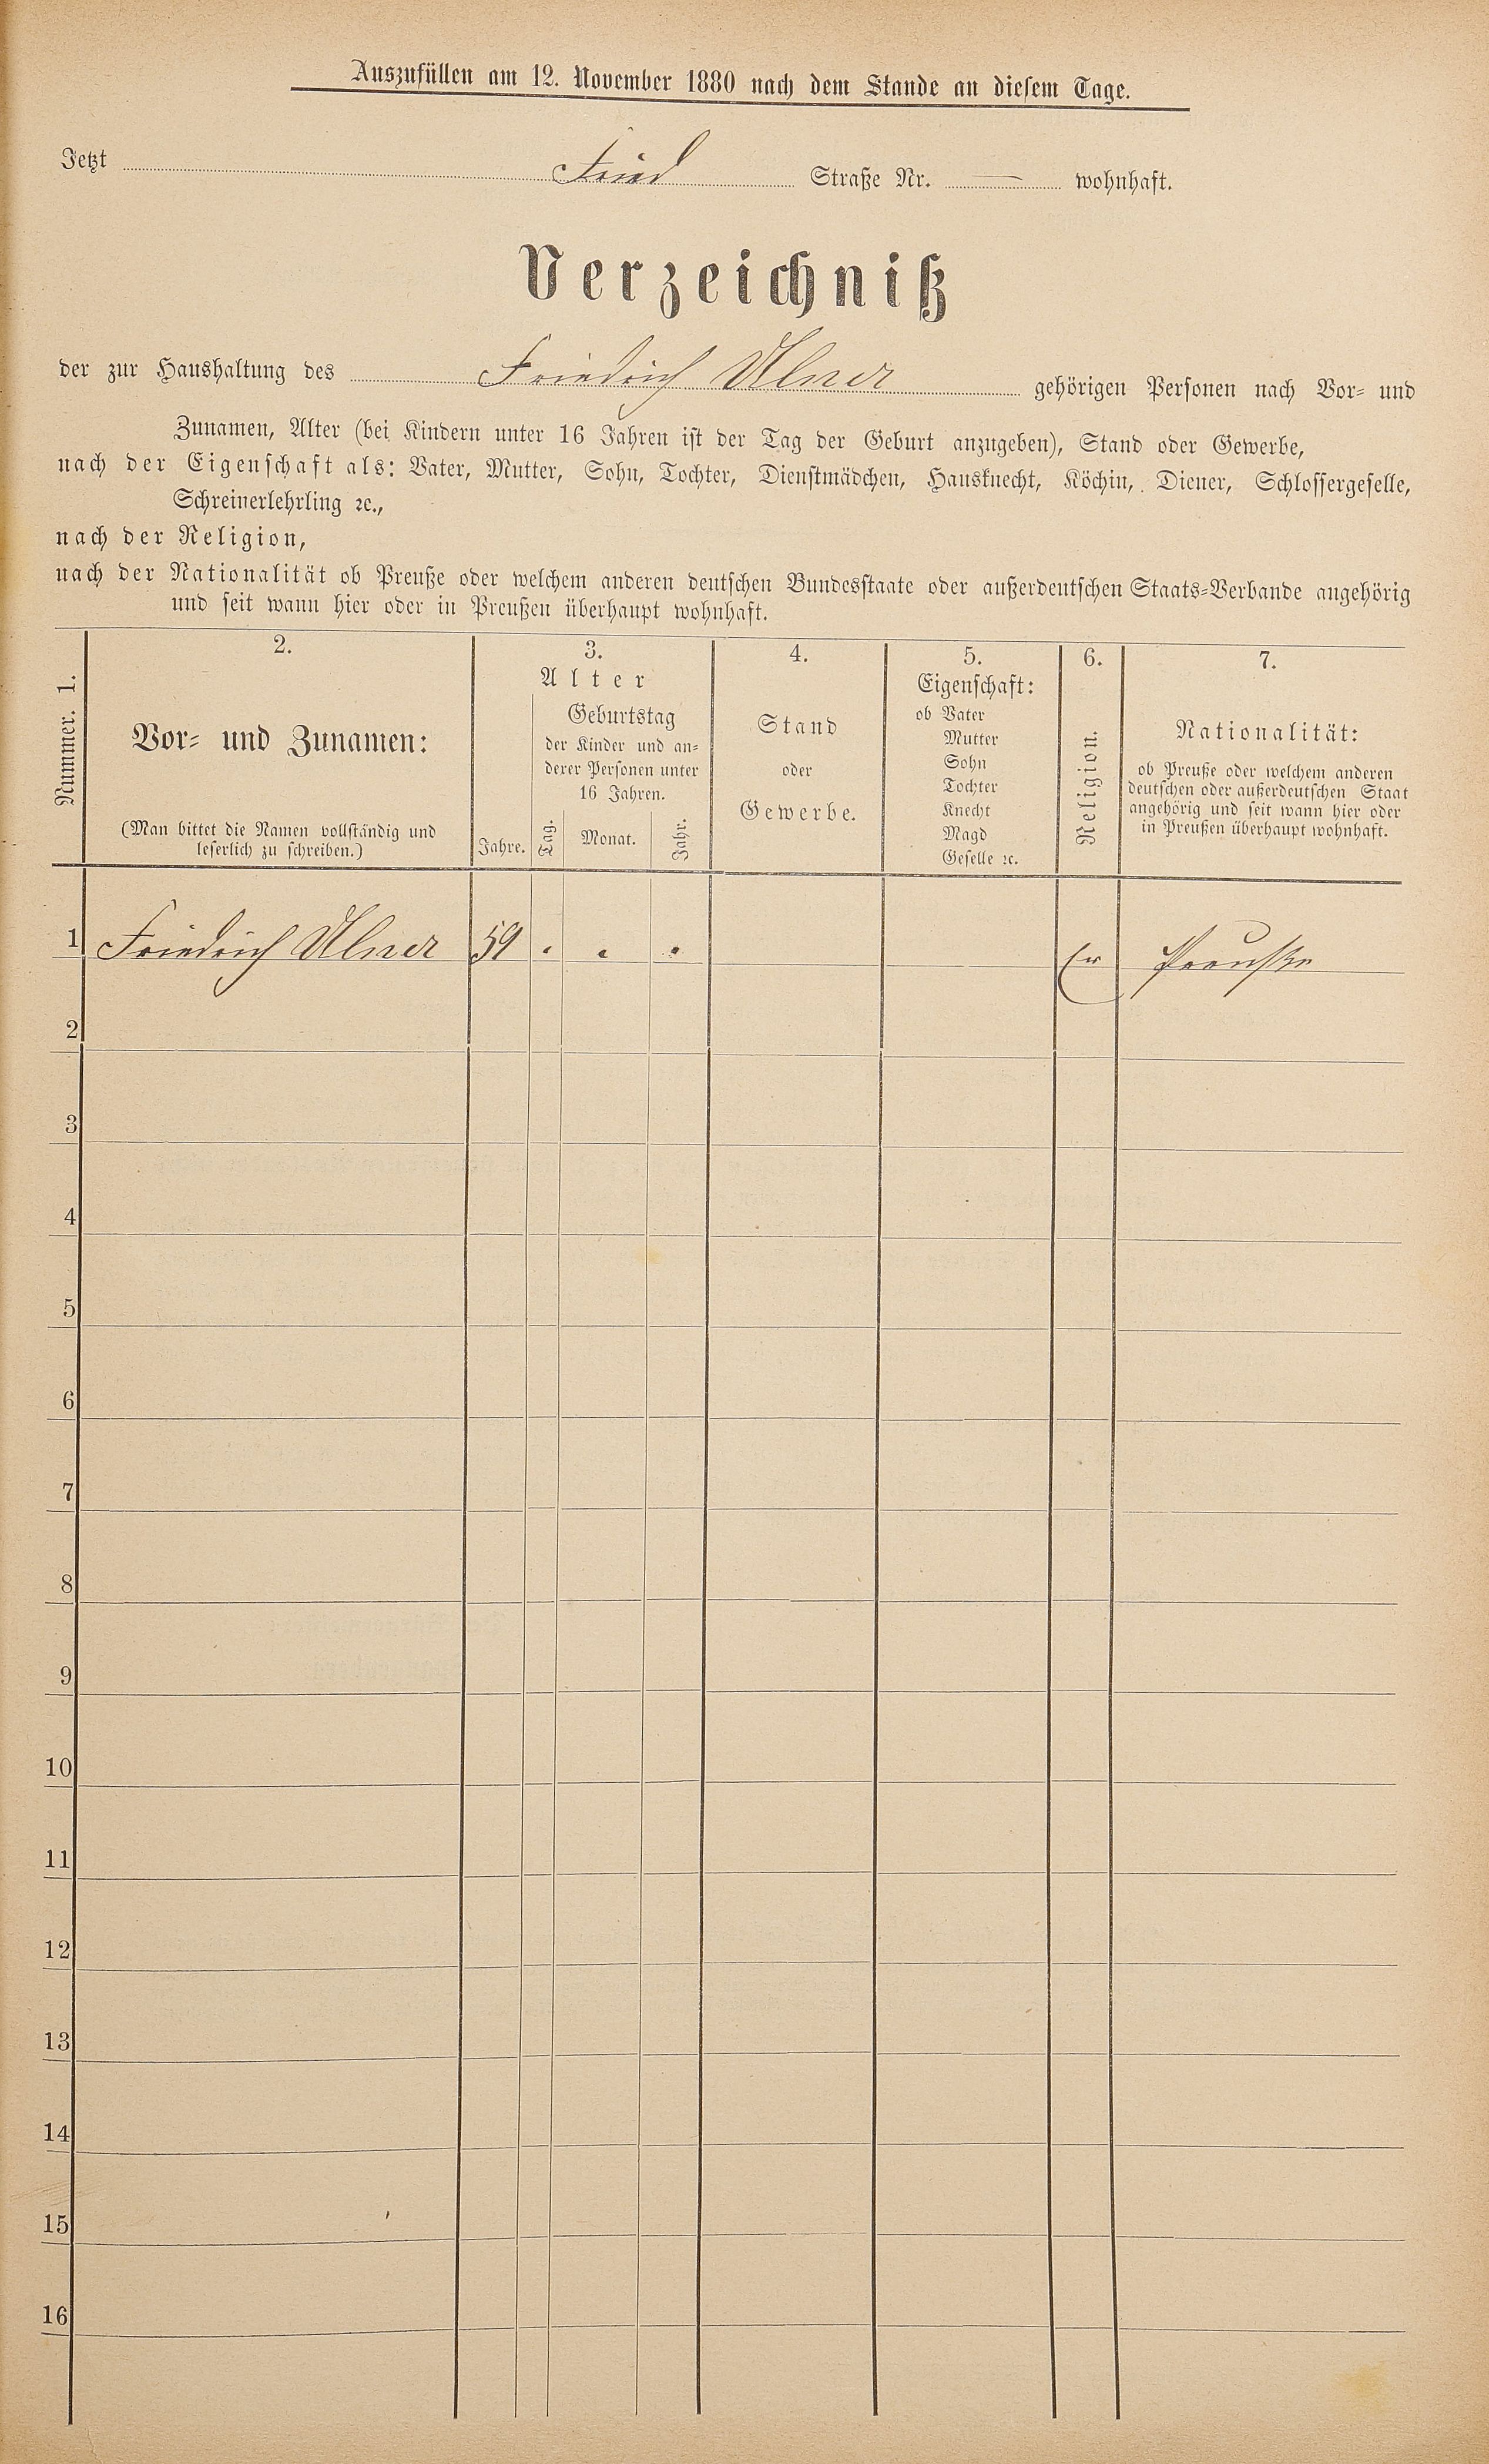 Auszufüllen am 12. November 1880 nach dem Stande an diesem Tage.
Jetzt Fried Straße Nr. — wohnhaft.
Verzeichniß
der zur Haushaltung des Friedrich Ulner gehörigen Personen nach Vor- und
Zunamen, Alter (bei Kindern unter 16 Jahren ist der Tag der Geburt anzugeben), Stand oder Gewerbe,
nach der Eigenschaft als: Vater, Mutter, Sohn, Tochter, Dienstmädchen, Hausknecht, Köchin, Diener, Schlossergeselle,
Schreinerlehrling ꝛc.,
nach der Religion,
nach der Nationalität ob Preuße oder welchem anderen deutschen Bundesstaate oder außerdeutschen Staats-Verbande angehörig
und seit wann hier oder in Preußen überhaupt wohnhaft.
Nummer. 1.
2.
Vor- und Zunamen:
(Man bittet die Namen vollständig und
leserlich zu schreiben.)
3.
Alter
Jahre.
Geburtstag
der Kinder und an-
derer Personen unter
16 Jahren.
Tag. Monat. Jahr.
4.
Stand
oder
Gewerbe.
5.
Eigenschaft:
ob Vater
Mutter
Sohn
Tochter
Knecht
Magd
Geselle ꝛc.
6.
Religion.
7.
Nationalität:
ob Preuße oder welchem anderen
deutschen oder außerdeutschen Staat
angehörig und seit wann hier oder
in Preußen überhaupt wohnhaft.
1 Friedrich Ulner 59 Preuße
2
3
4
5
6
7
8
9
10
11
12
13
14
15
16